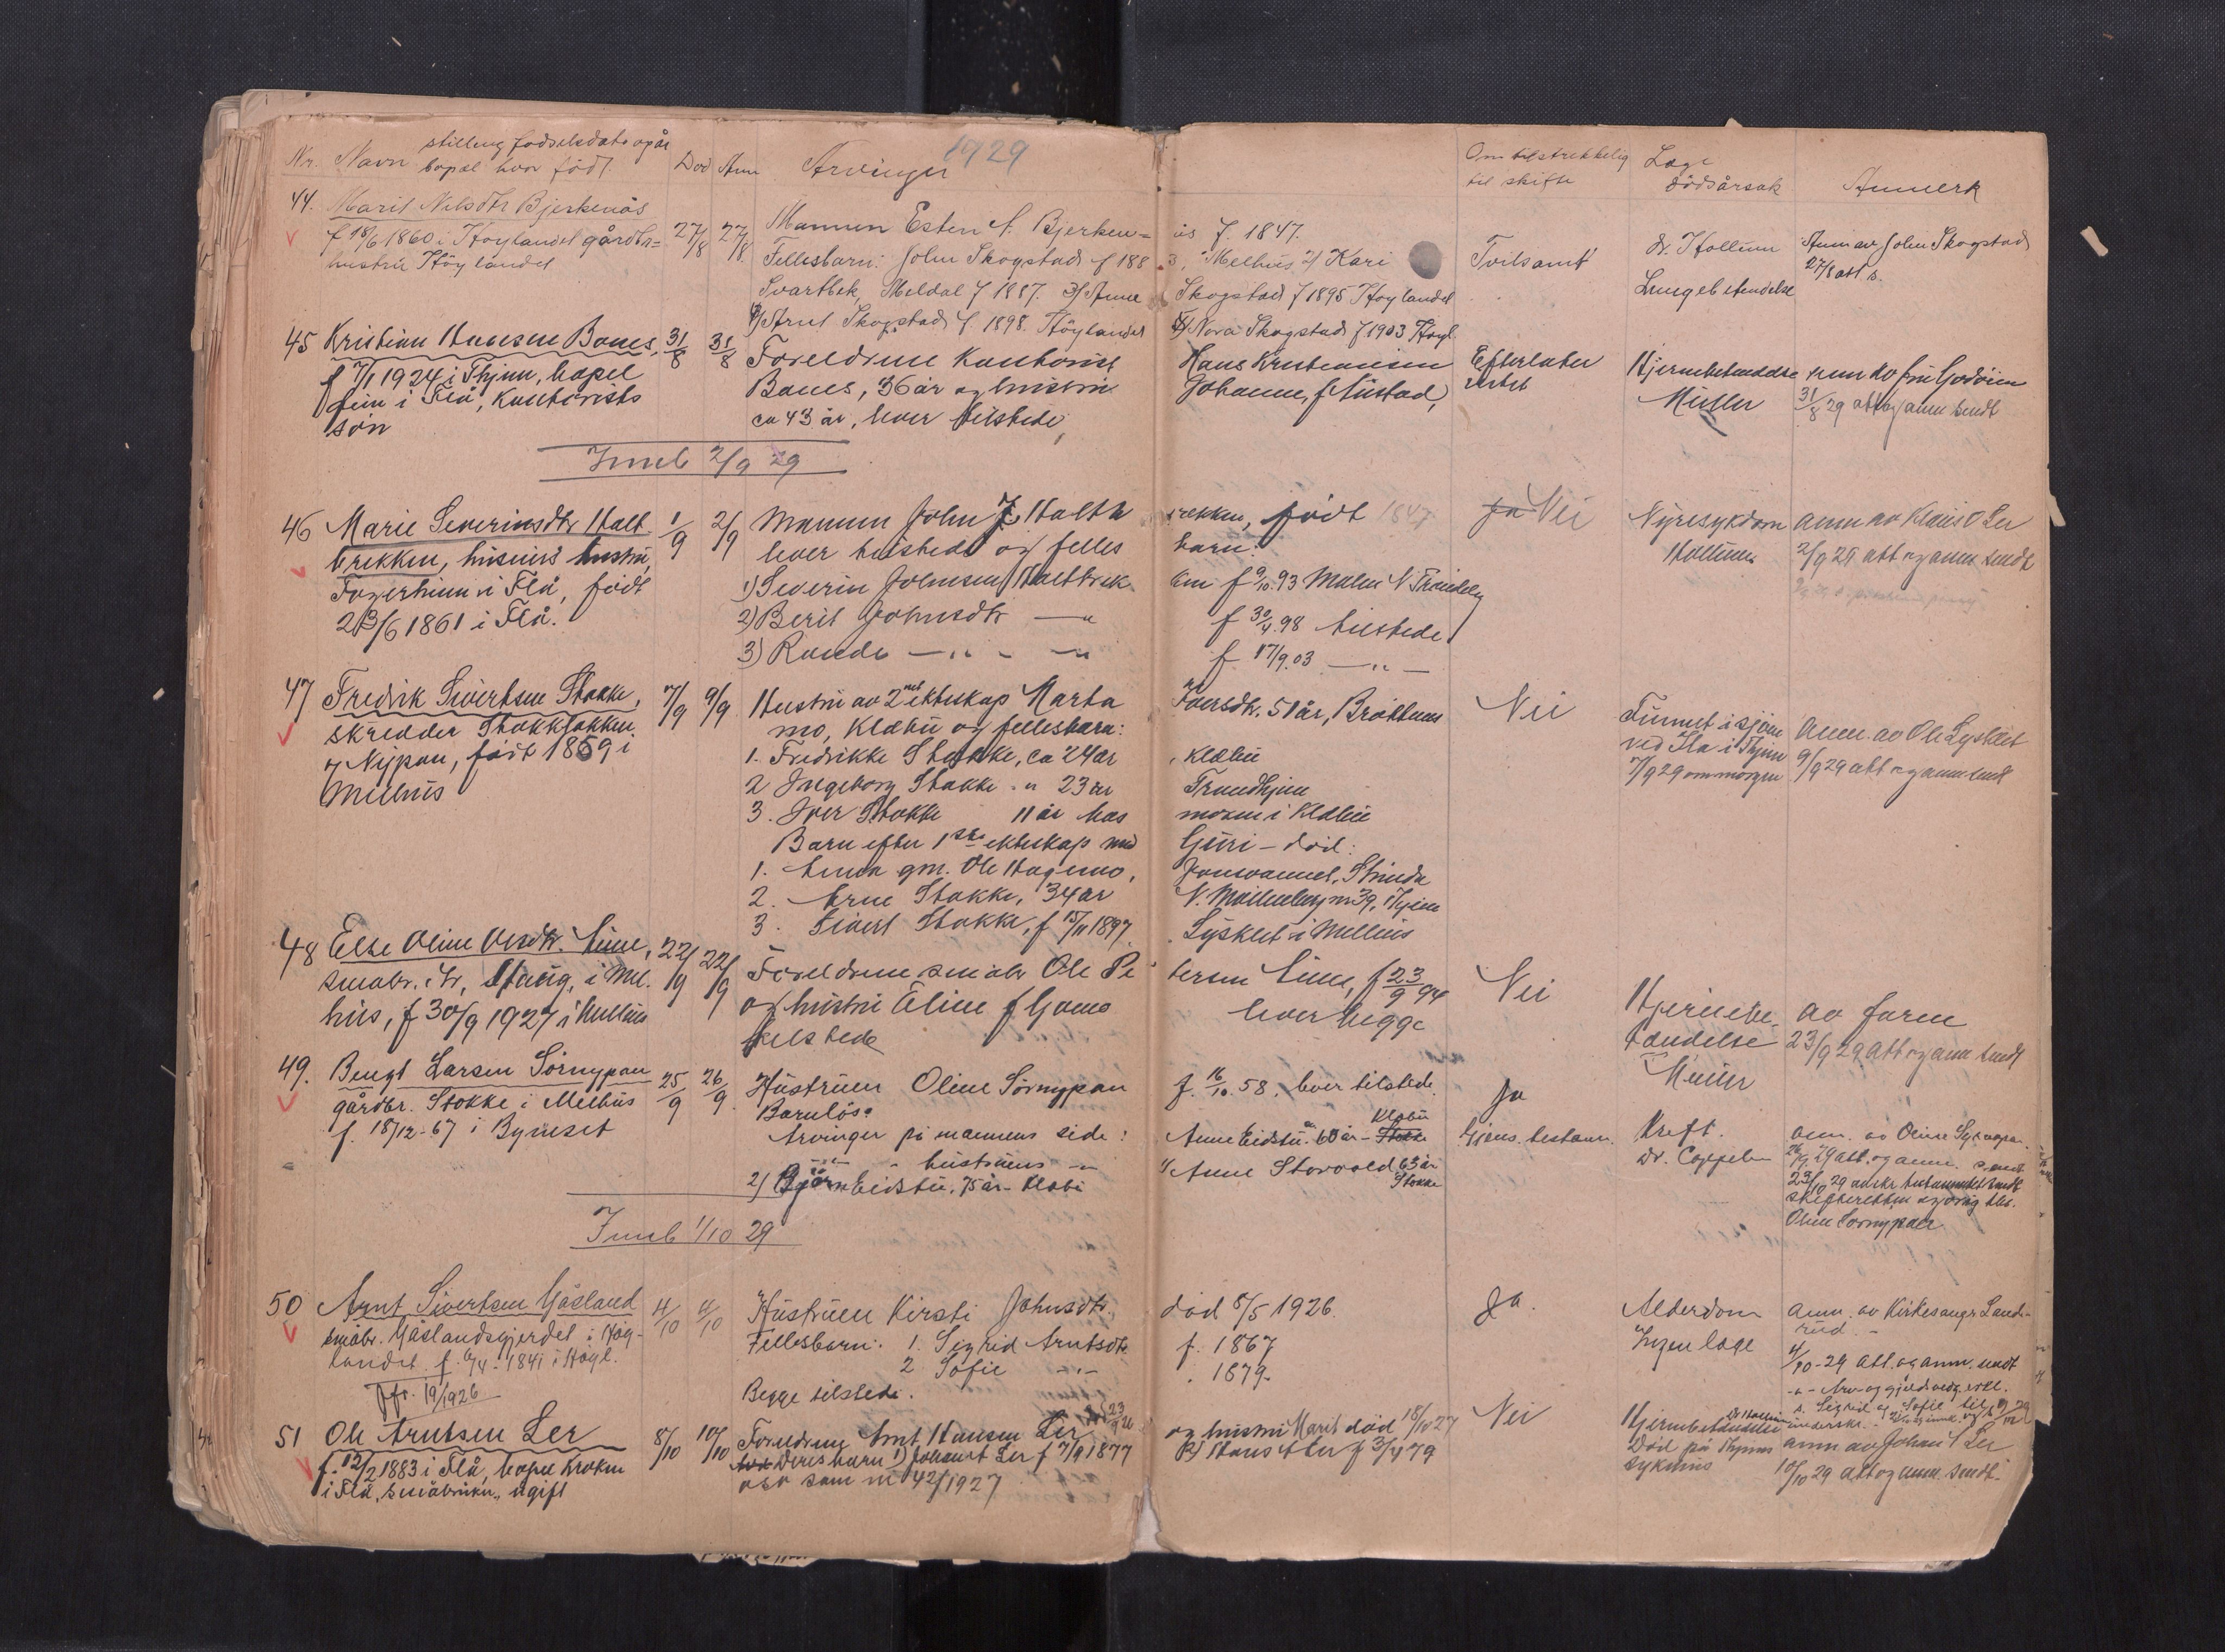 1929
Nr. Navn stilling fødselsdato og år bopel hvor født Död Anm Arvinger Om tilstrekkelig til skifte Læge dödsårsak Anmerk
44. Marit Nilsdtr Bjerkenås
f 18/6 1860 i Höylandet gårdbr=
hustru Höylandet
27/8 27/8
Mannen Esten N. Bjerken= ås f. 1847.
Fellesbarn: John Skogstad f 188 3, Melhus 2/ Kari
Svartbek, Meldal f 1887. 3/ Anne Skogstad f 1895 Höylandet
4/ Arnt Skogstad f. 1898. Höylandet 5/ Nora Skogstad f 1903 Höyl.
Tvilsomt
dr. Hollum
Lungebetendelse
Anm av John Skogstad
27/8 att s.
45 Kristian Hansen Banes,
f 7/1 1924 i Thjem, bopel
i Flå, kontorists
sön
31/8 31/8
Foreldrene Kontorist Hans Kristiansen
Banes, 36 år og hustru Johanne, f Austad,
ca 43 år, bever tilstede
Efterlater intet
Hjernebetendelse
Müller
anm av fru Godöien
31/8 29 att og anm sendt
Innb 2/9 29
46 Marie Severinsdtr Halt
brekken, husmns hustru,
Fagerhaun i Flå, født
23/6 1861 i Flå.
1/9 2/9
Mannen John J. Haltb rekken, født 1847
bever tilstede og felles barn:
1) Severin Johnsen Haltbrek ken f 9/10.93 Malm N Trøndelag
2) Berit Johnsdtr —"— f 30/4.98 tilstede
3) Randi —"— —"— f 17/9.03 —"—
Ja Nei
Nyresykdom
Hollum
anm av Klaus O Ler
2/9 29 att og anm sendt
47 Fredrik Sivertsen Stokke,
skredder Stokkbakken
v Nypan, født 1859 i
Melhus
7/9 9/9
Hustru av 2net ekteskap Marta Iversdtr. 51 år, Bröttems
mo, Klæbu og fellesbarn:
1. Fredrikke Stokke, ca 24 år, Klæbu
2 Ingeborg Stokke " 23 år Trondhjem
3. Iver Stokke 11 år hos moren i Klæbu
Barn efter 1ste ekteskap med Guri – död:
1. Anna gm. Ole Hagemo, Jonsvannet, Strinda
2. Arne Stokke, 34 år N. Möllenberg nr 39, Thjem
3. Sivert Stokke, f 15/11 1897. Lysklet i Melhus
Nei
Funnet i sjöen
ved Ila i Thjem
7/9 29 om morgen
Anm. av Ole Lysklet
9/9 29 att og anm sendt
48 Else Oline Olsdtr. Lium,
småbr. dtr, Skaug, i Mel-
hus, f 30/9 1927 i Melhus
22/9 22/9
Foreldrene småbr Ole Pe tersen Lium, f 23/9 94
og hustru Eline f Gomo bever begge
tilstede
Nei
Hjernebe-
tendelse
Müller
av faren
23/9 29 att og anm sendt
49. Bengt Larsen Sörnypan
gårdbr. Stokke i Melhus
f. 18/12-67 i Byneset
25/9 26/9
Hustruen Oline Sörnypan f. 16/10.58. bever tilstede.
Barnlös.
Arvinger på mannens side: Anne Eidstu. 60 år – Stokke Klæbu
—"— " hustruens —"— 1/ Anne Storvold 63 år Stokke
2/ Björn Eidstu. 75 år – Klæbu
Ja
Gjens. testam.
Kreft.
Dr. Coppelen
anm. av Oline Sörnypan
26/9 29 att. og anm. sendt
23/10 29 avskr testamentet sendt
skifteretten og orig tils.
Oline Sörnypan
Innb 1/10 29
50 Arnt Sivertsen Gåsland
småbr. Gåslandsgjerdet i Höy-
landet. f. 6/4-1841 i Höyl.
Jfr. 19/1926
4/10 4/10
Hustruen Kirsti Johnsdtr. död 8/5 1926.
Fellesbarn: 1. Sigrid Arntsdtr. f. 1867
2 Sofie —"— . 1879.
Begge tilstede.
Ja.
Alderdom
Ingen læge
anm. av Kirkesanger Lands-
rud. –
4/10-29 att. og anm. sendt
-"- Arv- og gjeldsvedg. erkl.
s. Sigrid og Sofie til
underskr.
51 Ole Arntsen Ler
f. 12/2 1883 i Flå, bopel Kroken
i Flå, småbruker, ugift
8/10 10/10
Foreldrene Arnt Hansen Ler död 23/9 26 og hustru Marit död 18/10 27
Deres barn 1) Johan A Ler f 7/9 1877 2) Hans A Ler f 3/4 79
osv som nr 42/1927
Nei
Hjernebetendelse
Dr Hollum
Död på Thjems
sykehus
anm av Johan A Ler
10/10 29 att og anm. sendt.